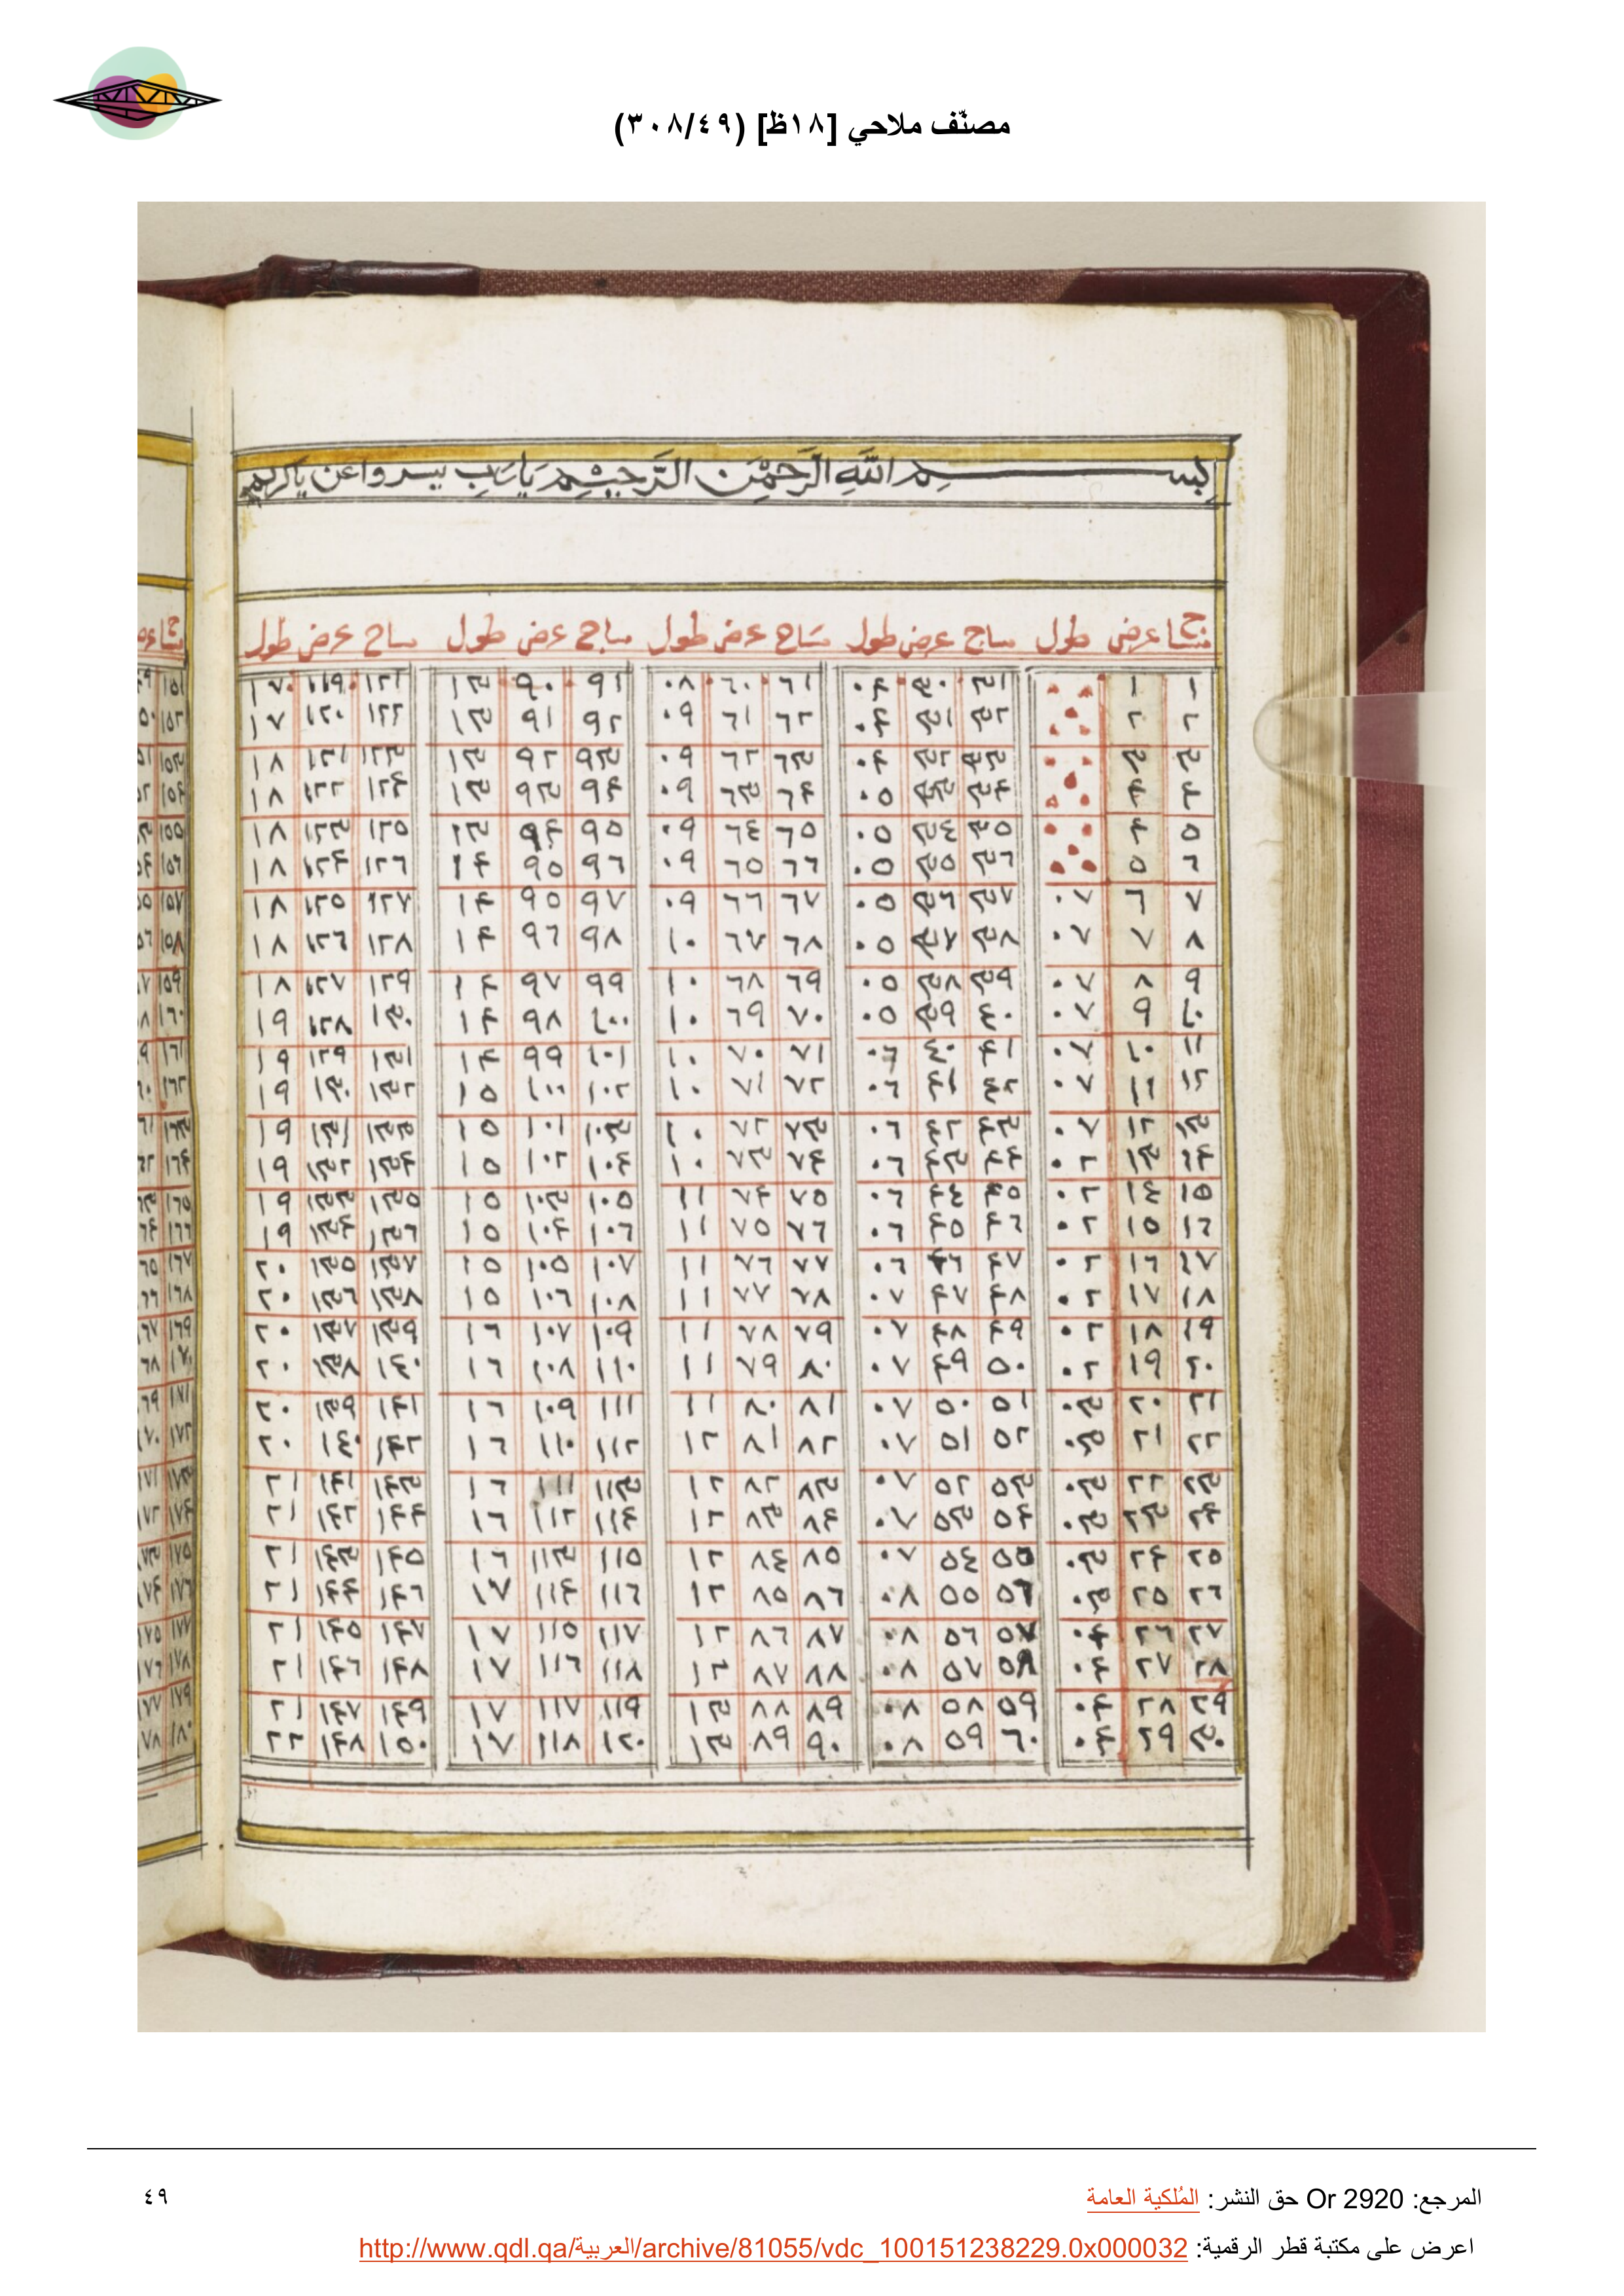 مصنّف ملاحي [١٨ظ] (٣٠٨/٤٩)
بسم اللَّهِ الرَّحْمَٰنِ الرَّحِيْمِ يَا رَبِ يسر واعن يا كريم
مساح عرض طول مساح عرض طول مساح عرض طول مساح عرض طول مساح عرض طول
١ ١ ٣١ ٣٠ ٠٤ ٦١ ٦٠ ٠٨ ٩١ ٩٠ ١٣ ١٢١ ١١٩ ١٧
٢ ٢ ٣٢ ٣١ ٠٤ ٦٢ ٦١ ٠٩ ٩٢ ٩١ ١٣ ١٢٢ ١٢٠ ١٧
٣ ٣ ٣٣ ٣٢ ٠٤ ٦٣ ٦٢ ٠٩ ٩٣ ٩٢ ١٣ ١٢٣ ١٢١ ١٨
٤ ٤ ٣٤ ٣٣ ٠٥ ٦٤ ٦٣ ٠٩ ٩٤ ٩٣ ١٣ ١٢٤ ١٢٢ ١٨
٥ ٤ ٣٥ ٣٤ ٠٥ ٦٥ ٦٤ ٠٩ ٩٥ ٩٤ ١٣ ١٢٥ ١٢٣ ١٨
٦ ٥ ٣٦ ٣٥ ٠٥ ٦٦ ٦٥ ٠٩ ٩٦ ٩٥ ١٤ ١٢٦ ١٢٤ ١٨
٧ ٦ ٠٧ ٣٧ ٣٦ ٠٥ ٦٧ ٦٦ ٠٩ ٩٧ ٩٥ ١٤ ١٢٧ ١٢٥ ١٨
٨ ٧ ٠٧ ٣٨ ٣٧ ٠٥ ٦٨ ٦٧ ١٠ ٩٨ ٩٦ ١٤ ١٢٨ ١٢٦ ١٨
٩ ٨ ٠٧ ٣٩ ٣٨ ٠٥ ٦٩ ٦٨ ١٠ ٩٩ ٩٧ ١٤ ١٢٩ ١٢٧ ١٨
١٠ ٩ ٠٧ ٤٠ ٣٩ ٠٥ ٧٠ ٦٩ ١٠ ١٠٠ ٩٨ ١٤ ١٣٠ ١٢٨ ١٩
١١ ١٠ ٠٧ ٤١ ٤٠ ٠٦ ٧١ ٧٠ ١٠ ١٠١ ٩٩ ١٤ ١٣١ ١٢٩ ١٩
١٢ ١١ ٠٧ ٤٢ ٤١ ٠٦ ٧٢ ٧١ ١٠ ١٠٢ ١٠٠ ١٥ ١٣٢ ١٣٠ ١٩
١٣ ١٢ ٠٧ ٤٣ ٤٢ ٠٦ ٧٣ ٧٢ ١٠ ١٠٣ ١٠١ ١٥ ١٣٣ ١٣١ ١٩
١٤ ١٣ ٠٢ ٤٤ ٤٣ ٠٦ ٧٤ ٧٣ ١٠ ١٠٤ ١٠٢ ١٥ ١٣٤ ١٣٢ ١٩
١٥ ١٤ ٠٢ ٤٥ ٤٤ ٠٦ ٧٥ ٧٤ ١١ ١٠٥ ١٠٣ ١٥ ١٣٥ ١٣٣ ١٩
١٦ ١٥ ٠٢ ٤٦ ٤٥ ٠٦ ٧٦ ٧٥ ١١ ١٠٦ ١٠٤ ١٥ ١٣٦ ١٣٤ ١٩
١٧ ١٦ ٠٢ ٤٧ ٤٦ ٠٦ ٧٧ ٧٦ ١١ ١٠٧ ١٠٥ ١٥ ١٣٧ ١٣٥ ٢٠
١٨ ١٧ ٠٢ ٤٨ ٤٧ ٠٧ ٧٨ ٧٧ ١١ ١٠٨ ١٠٦ ١٥ ١٣٨ ١٣٦ ٢٠
١٩ ١٨ ٠٢ ٤٩ ٤٨ ٠٧ ٧٩ ٧٨ ١١ ١٠٩ ١٠٧ ١٦ ١٣٩ ١٣٧ ٢٠
٢٠ ١٩ ٠٢ ٥٠ ٤٩ ٠٧ ٨٠ ٧٩ ١١ ١١٠ ١٠٨ ١٦ ١٤٠ ١٣٨ ٢٠
٢١ ٢٠ ٠٣ ٥١ ٥٠ ٠٧ ٨١ ٨٠ ١١ ١١١ ١٠٩ ١٦ ١٤١ ١٣٩ ٢٠
٢٢ ٢١ ٠٣ ٥٢ ٥١ ٠٧ ٨٢ ٨١ ١٢ ١١٢ ١١٠ ١٦ ١٤٢ ١٤٠ ٢٠
٢٣ ٢٢ ٠٣ ٥٣ ٥٢ ٠٧ ٨٣ ٨٢ ١٢ ١١٣ ١١١ ١٦ ١٤٣ ١٤١ ٢١
٢٤ ٢٣ ٠٣ ٥٤ ٥٣ ٠٧ ٨٤ ٨٣ ١٢ ١١٤ ١١٢ ١٦ ١٤٤ ١٤٢ ٢١
٢٥ ٢٤ ٠٣ ٥٥ ٥٤ ٠٧ ٨٥ ٨٤ ١٢ ١١٥ ١١٣ ١٦ ١٤٥ ١٤٣ ٢١
٢٦ ٢٥ ٠٣ ٥٦ ٥٥ ٠٨ ٨٦ ٨٥ ١٢ ١١٦ ١١٤ ١٧ ١٤٦ ١٤٤ ٢١
٢٧ ٢٦ ٠٤ ٥٧ ٥٦ ٠٨ ٨٧ ٨٦ ١٢ ١١٧ ١١٥ ١٧ ١٤٧ ١٤٥ ٢١
٢٨ ٢٧ ٠٤ ٥٨ ٥٧ ٠٨ ٨٨ ٨٧ ١٣ ١١٨ ١١٦ ١٧ ١٤٨ ١٤٦ ٢١
٢٩ ٢٨ ٠٤ ٥٩ ٥٨ ٠٨ ٨٩ ٨٨ ١٣ ١١٩ ١١٧ ١٧ ١٤٩ ١٤٧ ٢١
٣٠ ٢٩ ٠٤ ٦٠ ٥٩ ٠٨ ٩٠ ٨٩ ١٣ ١٢٠ ١١٨ ١٧ ١٥٠ ١٤٨ ٢٢
المرجع: Or 2920 حق النشر: المُلكية العامة
٤٩
اعرض على مكتبة قطر الرقمية: http://www.qdl.qa/العربية/archive/81055/vdc_100151238229.0x000032